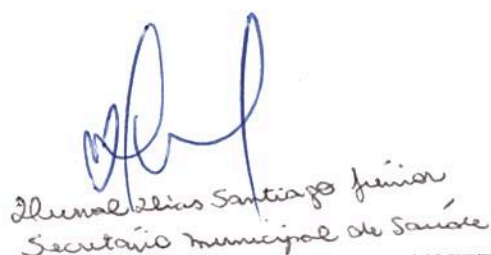 Elias Santiago Júnior
Secretário municipal de Saúde